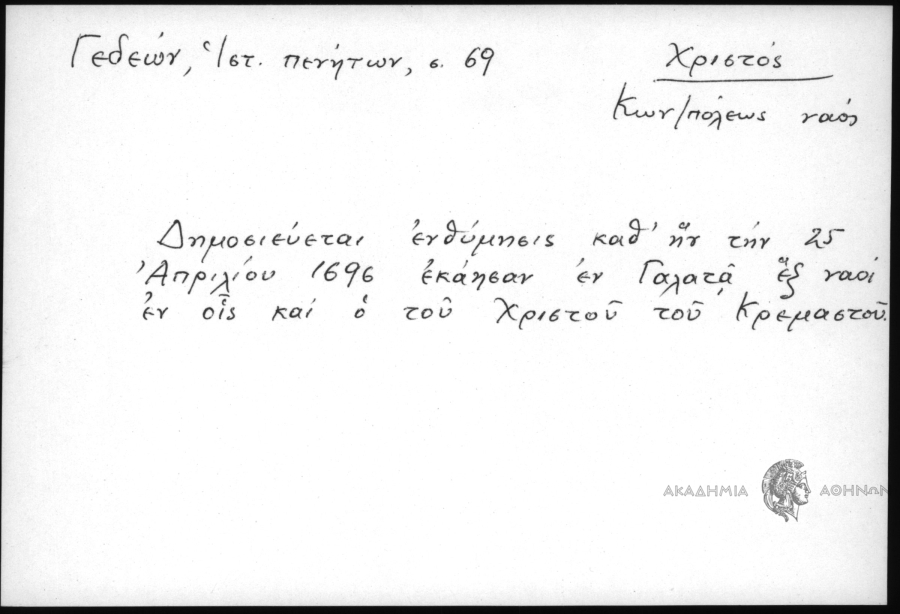 Γεδεών, Ἱστ. πενήτων, σ. 69
Χριστός
Κων/πόλεως ναός
Δημοσιεύεται ἐνθύμησις καθ' ἥν τήν 25
Ἀπριλίου 1696 ἐκάησαν ἐν Γαλατᾷ ἕξ ναοί
ἐν οἷς καί ὁ τοῦ Χριστοῦ τοῦ Κρεμαστοῦ.
ΑΚΑΔΗΜΙΑ ΑΘΗΝΩΝ